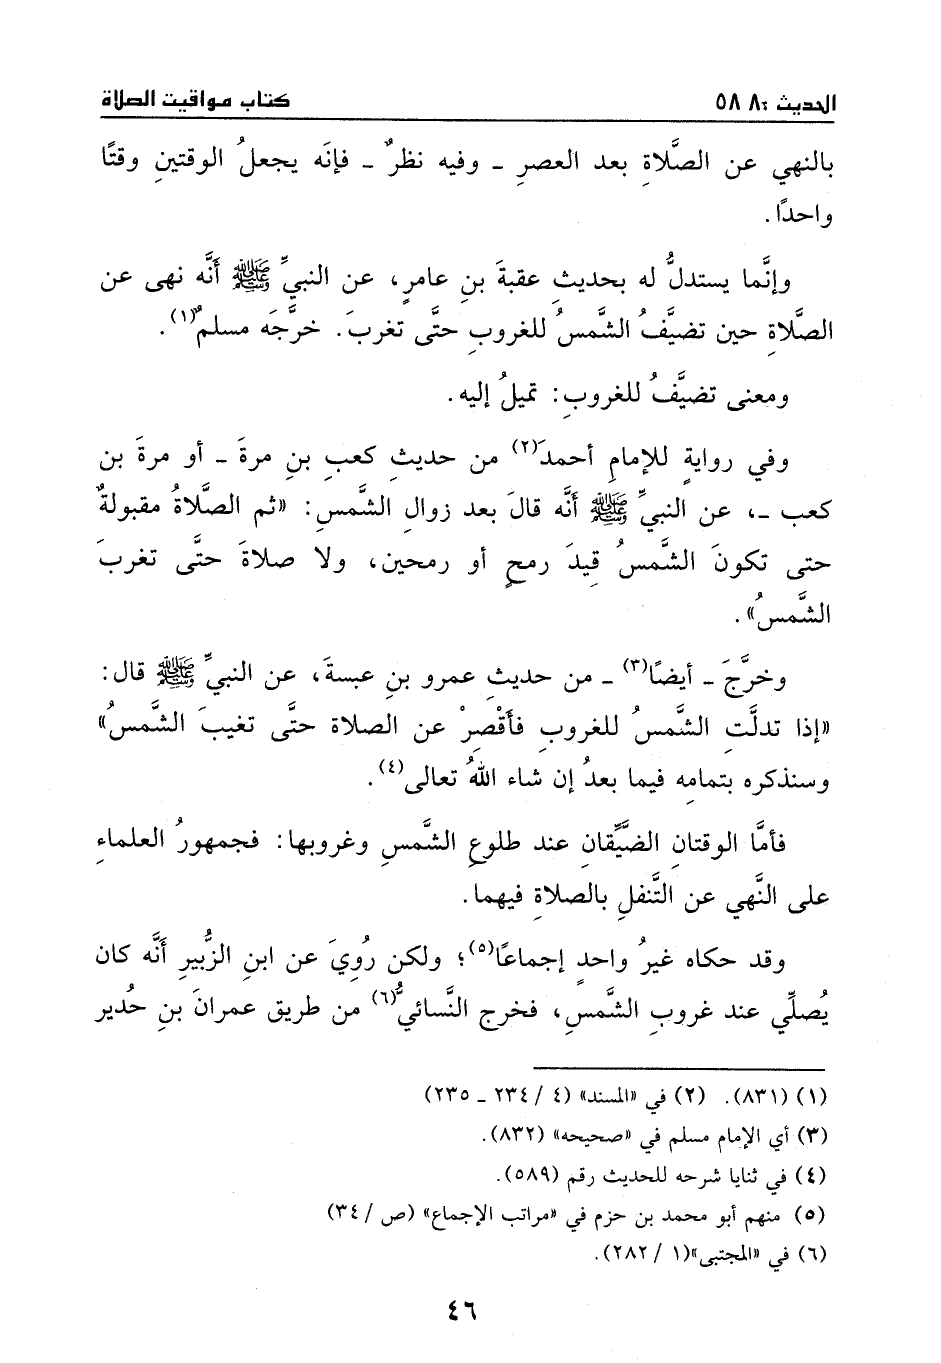 الحديث : ٥٨٨ كتاب مواقيت الصلاة
بالنهي عن الصَّلاةِ بعد العصرِ - وفيه نظرٌ - فإنَه يجعلُ الوقتينِ وقتًا
واحدًا.
وإنَّما يستدلُّ له بحديثِ عقبةَ بنِ عامرٍ، عن النبيِّ ﷺ أَنَّه نهى عن
الصَّلاةِ حين تضيَّفُ الشَّمسُ للغروبِ حتَّى تغربَ. خرَّجَه مسلمٌ(١).
ومعنى تضيَّفُ للغروبِ: تميلُ إليه.
وفي روايةٍ للإمامِ أحمدَ(٢) من حديثِ كعبِ بنِ مرةَ - أو مرةَ بن
كعب -، عن النبيِّ ﷺ أَنَّه قالَ بعد زوالِ الشَّمسِ: «ثم الصَّلاةُ مقبولةٌ
حتى تكونَ الشَّمسُ قِيدَ رمحٍ أو رمحين، ولا صلاةَ حتَّى تغربَ
الشَّمسُ».
وخرَّجَ - أيضًا(٣) - من حديثِ عمرو بنِ عبسةَ، عن النبيِّ ﷺ قال:
«إذا تدلَّتِ الشَّمسُ للغروبِ فأَقْصِرْ عن الصلاة حتَّى تغيبَ الشَّمسُ»
وسنذكره بتمامِه فيما بعدُ إن شاء اللهُ تعالى(٤).
فأمَّا الوقتانِ الضَّيِّقانِ عند طلوعِ الشَّمسِ وغروبها: فجمهورُ العلماءِ
على النَّهي عن التَّنفلِ بالصلاةِ فيهما.
وقد حكاه غيرُ واحدٍ إجماعًا(٥)؛ ولكن رُوِيَ عن ابنِ الزُّبيرِ أَنَّه كان
يُصلِّي عند غروبِ الشَّمسِ، فخرج النَّسائيُّ(٦) من طريق عمرانَ بنِ حُدير
(١) (٨٣١). (٢) في «المسند» (٤ / ٢٣٤ - ٢٣٥)
(٣) أي الإمام مسلم في «صحيحه» (٨٣٢).
(٤) في ثنايا شرحه للحديث رقم (٥٨٩).
(٥) منهم أبو محمد بن حزم في «مراتب الإجماع» (ص / ٣٤)
(٦) في «المجتبى»(١ / ٢٨٢).
٤٦